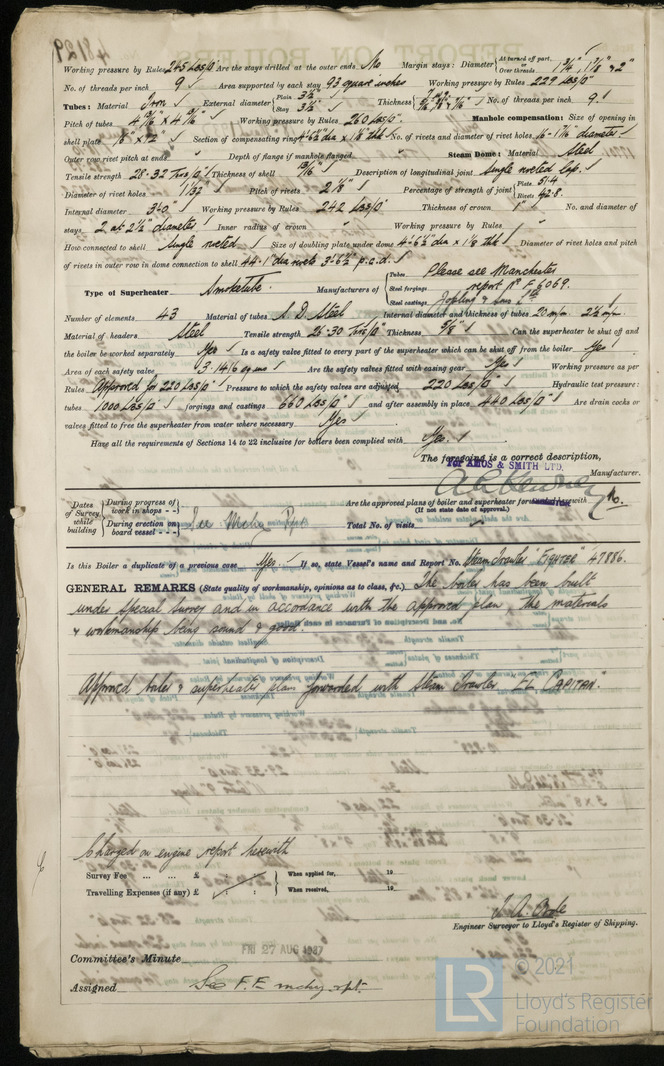 48129
Working pressure by Rules 245 Lbs/□" Are the stays drilled at the outer ends No Margin stays: Diameter { At turned off part. Over threads 1¾", 1⅞" & 2"
No. of threads per inch 9 Area supported by each stay 93 square inches Working pressure by Rules 229 Lbs/□"
Tubes: Material Iron External diameter { Plain 3½" Stay 3½" Thickness { No. of threads per inch 9
Pitch of tubes 4 11/16" x 4 11/16" Working pressure by Rules 260 Lbs/□". Manhole compensation: Size of opening in
shell plate 16" x 12" Section of compensating ring 4'-6½" dia x 1⅛" thk No. of rivets and diameter of rivet holes 16 - 1 7/16" diameter
Outer row rivet pitch at ends Depth of flange if manhole flanged Steam Dome: Material Steel
Tensile strength 28-32 Tons/□" Thickness of shell 13/16" Description of longitudinal joint Single riveted lap.
Diameter of rivet holes 1 1/32" Pitch of rivets 2⅛" Percentage of strength of joint { Plate 51.4 Rivets 42.8
Internal diameter 3'-0" Working pressure by Rules 242 Lbs/□" Thickness of crown 1" No. and diameter of
stays 2 at 2½" diameter Inner radius of crown Working pressure by Rules
How connected to shell Single riveted Size of doubling plate under dome 4'-6½" dia x 1⅛" thk Diameter of rivet holes and pitch
of rivets in outer row in dome connection to shell 44 - 1" dia rivets 3'-6½" p.c.d.
Type of Superheater Smoketube. Manufacturers of { Tubes Please see Manchester
Steel forgings report No F 6069.
Steel castings Jopling & Sons Ltd
Number of elements 43 Material of tubes S D Steel Internal diameter and thickness of tubes 20 m/m 2½ m/m
Material of headers Steel Tensile strength 26-30 Tons/□" Thickness 5/8" Can the superheater be shut off and
the boiler be worked separately Yes Is a safety valve fitted to every part of the superheater which can be shut off from the boiler Yes
Area of each safety valve 3.1416 sq ins Are the safety valves fitted with easing gear Yes Working pressure as per
Rules Approved for 220 Lbs/□" Pressure to which the safety valves are adjusted 220 Lbs/□" Hydraulic test pressure:
tubes 1000 Lbs/□" forgings and castings 660 Lbs/□" and after assembly in place 440 Lbs/□" Are drain cocks or
valves fitted to free the superheater from water where necessary Yes
Have all the requirements of Sections 14 to 22 inclusive for boilers been complied with Yes.
The foregoing is a correct description,
For AMOS & SMITH LTD. Manufacturer.
Dates of Survey while building { During progress of work in shops - - } { During erection on board vessel - - - } See Mchy Rpt Are the approved plans of boiler and superheater forwarded herewith No.
(If not state date of approval.)
Total No. of visits
Is this Boiler a duplicate of a previous case Yes. If so, state Vessel's name and Report No. Steam Trawler 47886.
GENERAL REMARKS (State quality of workmanship, opinions as to class, &c.) The boiler has been built
under Special Survey and in accordance with the approved plan, the materials
& workmanship being sound & good.
Approved boiler & superheater plan forwarded with Steam Trawler "EL CAPITAN."
Charged on engine report herewith
Survey Fee ... ... £ : : When applied for, 19
Travelling Expenses (if any) £ : : When received, 19
Engineer Surveyor to Lloyd's Register of Shipping.
Committee's Minute FRI 27 AUG 1937
Assigned See F.E. mchy. rpt.
LR © 2021
Lloyd's Register
Foundation